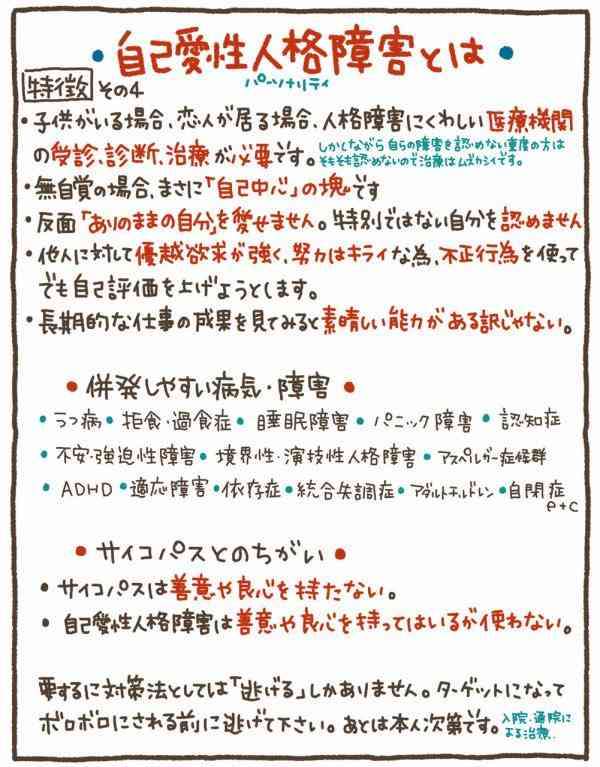 • 自己愛性人格障害とは •
パーソナリティ
特徴 その4
・子供がいる場合、恋人が居る場合、人格障害にくわしい医療機関
の受診、診断、治療が必要です。
しかしながら 自らの障害を認めない重度の方は
そもそも認めないので治療はムズカシイです。
・無自覚の場合、まさに「自己中心」の塊です
・反面「ありのままの自分」を愛せません。特別ではない自分を認めません
・他人に対して優越欲求が強く、努力はキライな為、不正行為を使って
でも自己評価を上げようとします。
・長期的な仕事の成果を見てみると素晴しい能力がある訳じゃない。
• 併発しやすい病気・障害 •
・うつ病・拒食・過食症・睡眠障害・パニック障害・認知症
・不安・強迫性障害・境界性・演技性人格障害・アスペルガー症候群
・ADHD・適応障害・依存症・統合失調症・アダルトチルドレン・自閉症
etc
• サイコパスとのちがい •
• サイコパスは善意や良心を持たない。
• 自己愛性人格障害は善意や良心を持ってはいるが使わない。
要するに対策法としては「逃げる」しかありません。ターゲットになって
ボロボロにされる前に逃げて下さい。あとは本人次第です。
入院・通院に
よる治療.